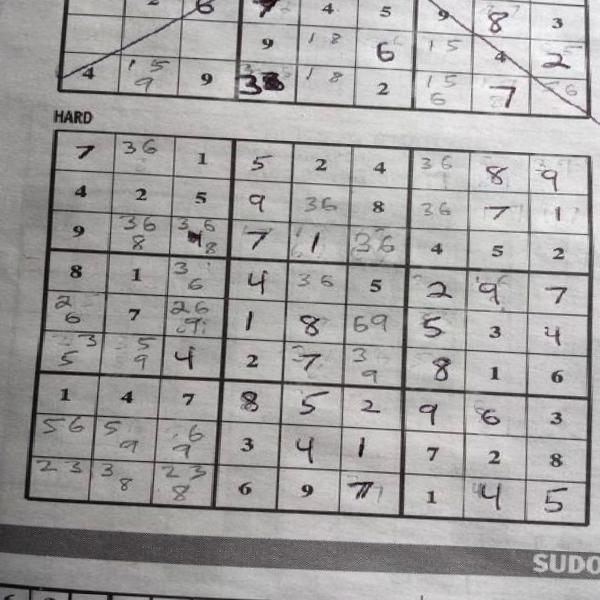 2 6 7 4 5 9 8 3
9 1 8 6 1 5 4 2
4 1 5 9 9 3 8 1 8 2 1 5 6 7 5 6
HARD
7 3 6 1 5 2 4 3 6 8 9
4 2 5 9 3 6 8 3 6 7 1
9 3 6 8 3 6 8 7 1 3 6 4 5 2
8 1 3 6 4 3 6 5 2 9 7
2 6 7 2 6 9 1 8 6 9 5 3 4
3 5 5 9 4 2 7 3 9 8 1 6
1 4 7 8 5 2 9 6 3
5 6 5 9 6 9 3 4 1 7 2 8
2 3 3 8 2 3 8 6 9 7 1 4 5
SUDO